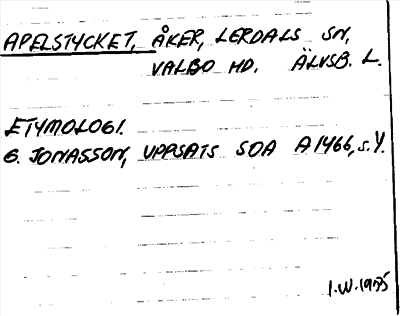 APELSTYCKET, ÅKER, LERDALS SN,
VALBO HD. ÄLVSB. L.
ETYMOLOGI.
G. JONASSON, UPPSATS SOA A1466, s. Y.
I.W. 1975